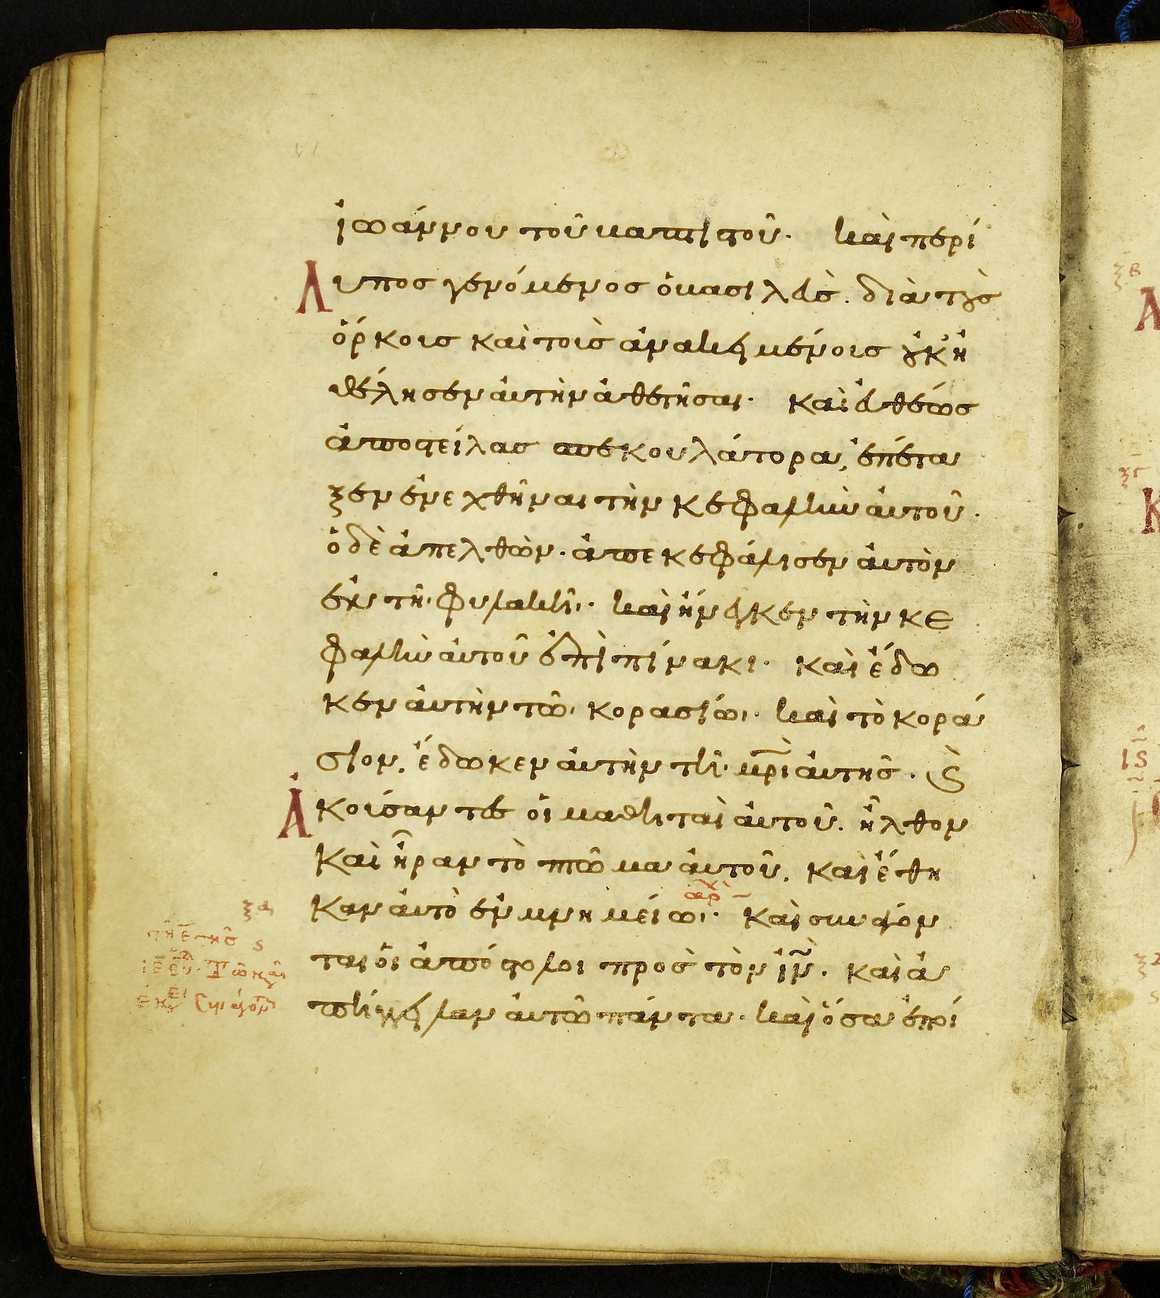 ἰωάννου τοῦ βαπτιστοῦ· καὶ περί
λυπος γενόμενος ὁ βασιλεὺς. διὰ τοὺς
ὅρκους καὶ τοὺς ἀνακειμένοις οὐκ ἠ
θέλησεν αὐτὴν ἀθετῆσαι· καὶ εὐθέως
ἀποστείλας σπεκουλάτορα, ἐπέτα
ξεν ἐνεχθῆναι τὴν κεφαλὴν αὐτοῦ.
ὁ δὲ ἀπελθὼν· ἀπεκεφάλισεν αὐτὸν
ἐν τῆ φυλακῆ· καὶ ἤνεγκεν τὴν κε
φαλὴν αὐτοῦ ἐπὶ πίνακι· καὶ ἔδω
κεν αὐτὴν τῶ κορασίω· καὶ τὸ κορά
σιον, ἔδωκεν αὐτὴν τῆ μρὶ αὐτῆς· Καὶ
ἀκούσαντες οἱ μαθηταὶ αὐτοῦ. ἦλθον
καὶ ἦραν τὸ πτῶμα αὐτοῦ, καὶ ἔθη
καν αὐτὸ ἐν μνημείω· καὶ συνάγον
ται οἱ ἀπόστολοι πρὸς τὸν ἰν· καὶ ἀ
πήγγειλαν αὐτῶ πάντα· καὶ ὅσα ἐποί
ξα